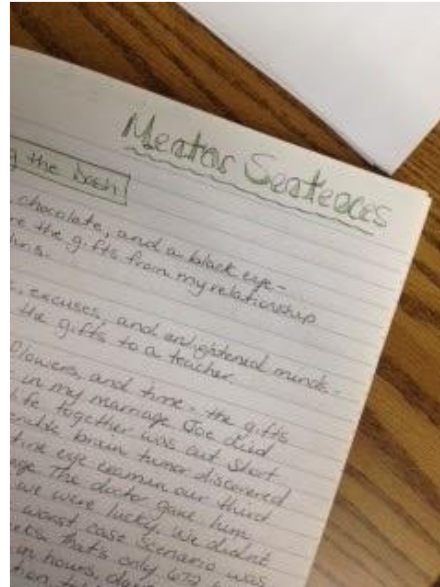 Mentor Sentences
g the Dash
chocolate, and a black eye-
re the gifts from my relationship
excuses, and enlightened minds -
the gifts to a teacher.
flowers, and time - the gifts
in my marriage Joe and
life together was cut short
brain tumor discovered
eye exam in our third
The doctor gave him
we were lucky. We didn't
worst case scenario was
that's only 672
in hours, da